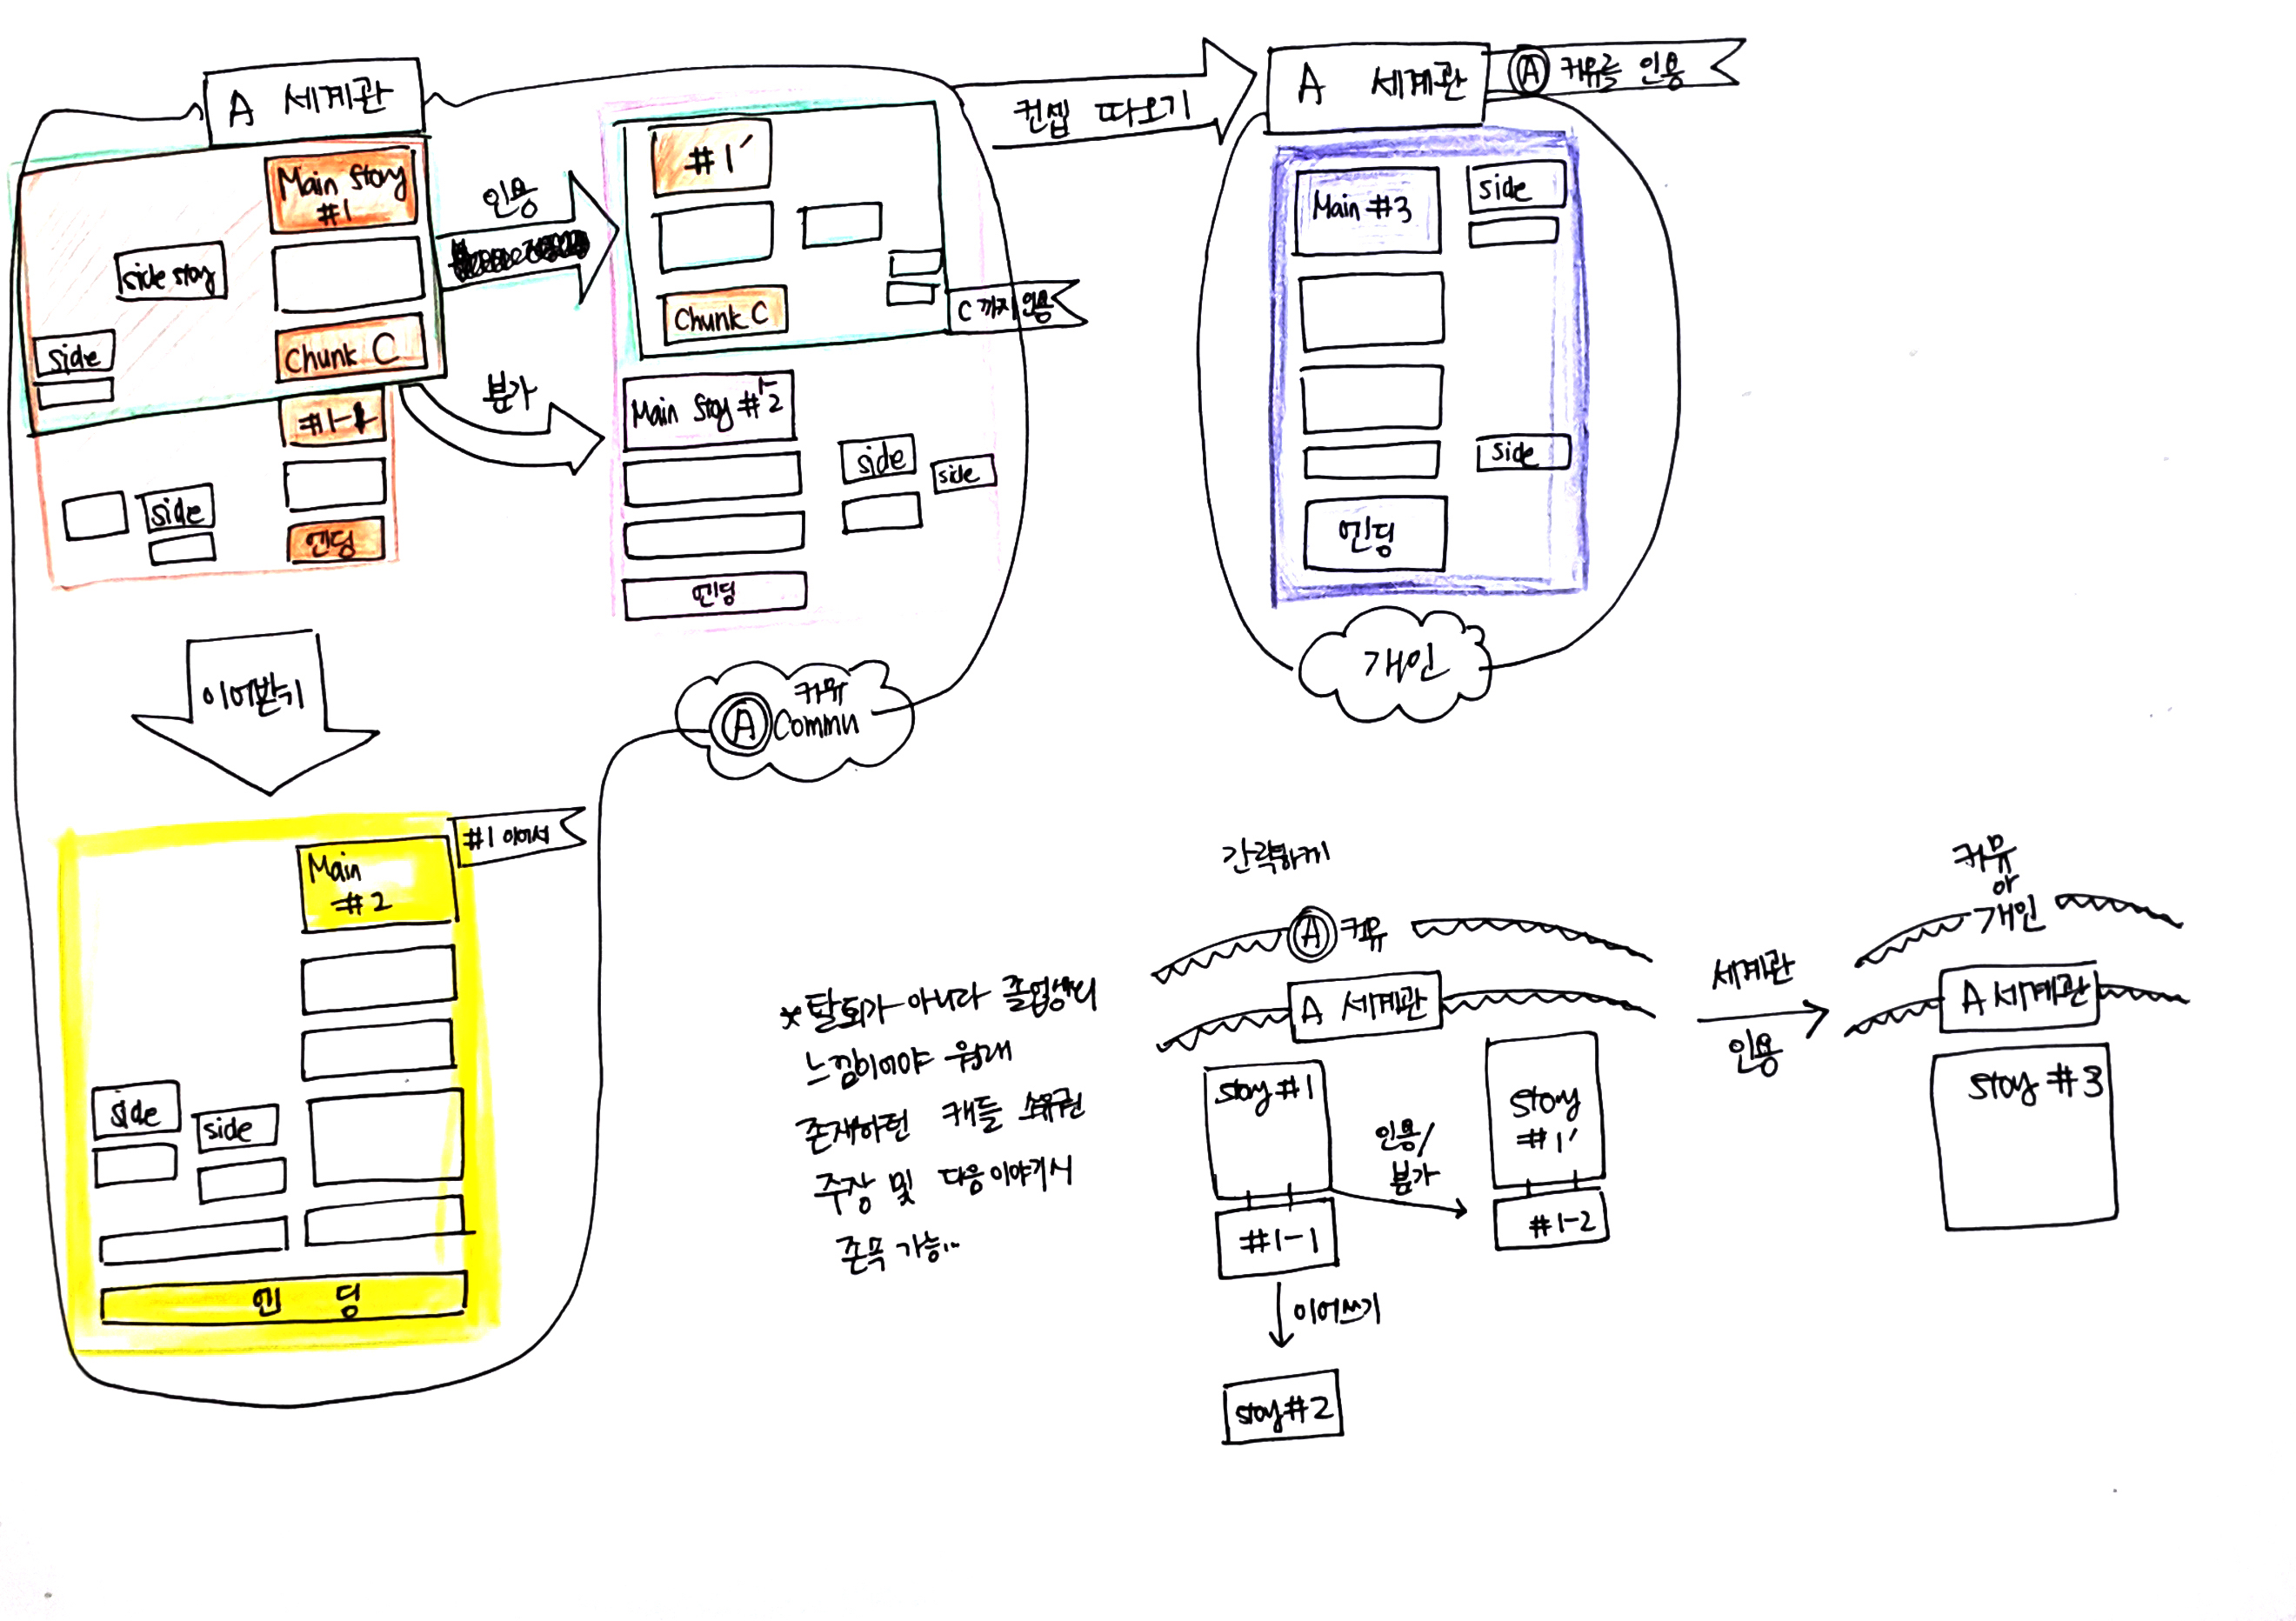 A 세계관
Main Story
#1
side story
side
Chunk C
#1-1
side
엔딩
인용
분가
#1'
Chunk C
C까지 인용
Main Story #2
side
side
엔딩
컨셉 따오기
A 세계관
A 커뮤를 인용
Main #3
side
side
엔딩
개인
A 커뮤
Commu
이어받기
#1 이어서
Main
#2
side
side
엔 딩
*탈퇴가 아니라 졸업생의
느낌이어야 원래
존재하던 캐들 소유권
주장 및 다음 이야기서
존속 가능...
간략하게
A 커뮤
A 세계관
story #1
#1-1
인용/
분가
story
#1'
#1-2
이어쓰기
story #2
세계관
인용
커뮤
or
개인
A 세계관
story #3